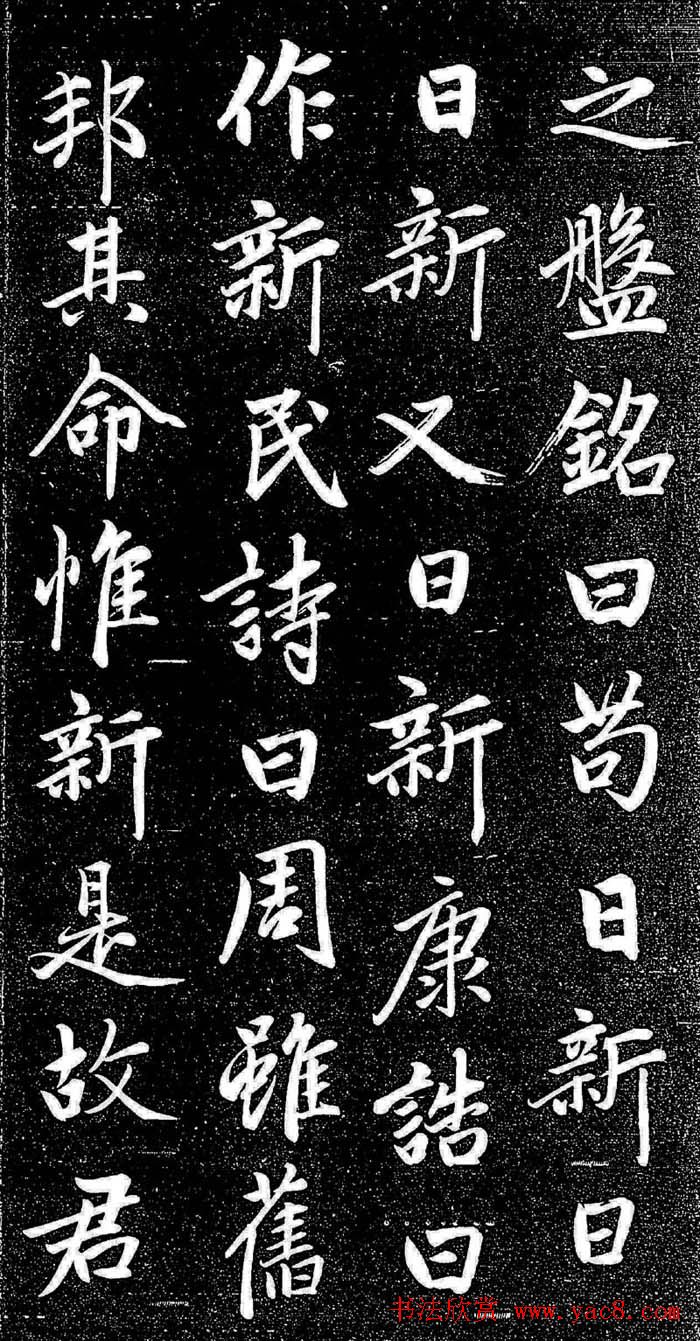 之盤銘曰苟日新日
日新又日新康誥曰
作新民詩曰周雖舊
邦其命惟新是故君
书法欣赏 www.yac8.com